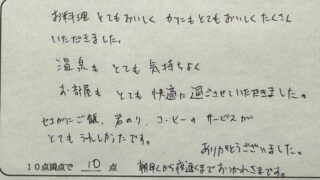 お料理 とてもおいしく かにもとてもおいしく たくさん
いただきました。
温泉も とても 気持ちよく
お部屋も とても 快適に過ごさせていただきました。
ご飯、岩のり、コーヒーのサービスが
とてもうれしかったです。
ありがとうございました。
10点満点で 10 点 朝早くから夜遅くまでおつかれさまです。